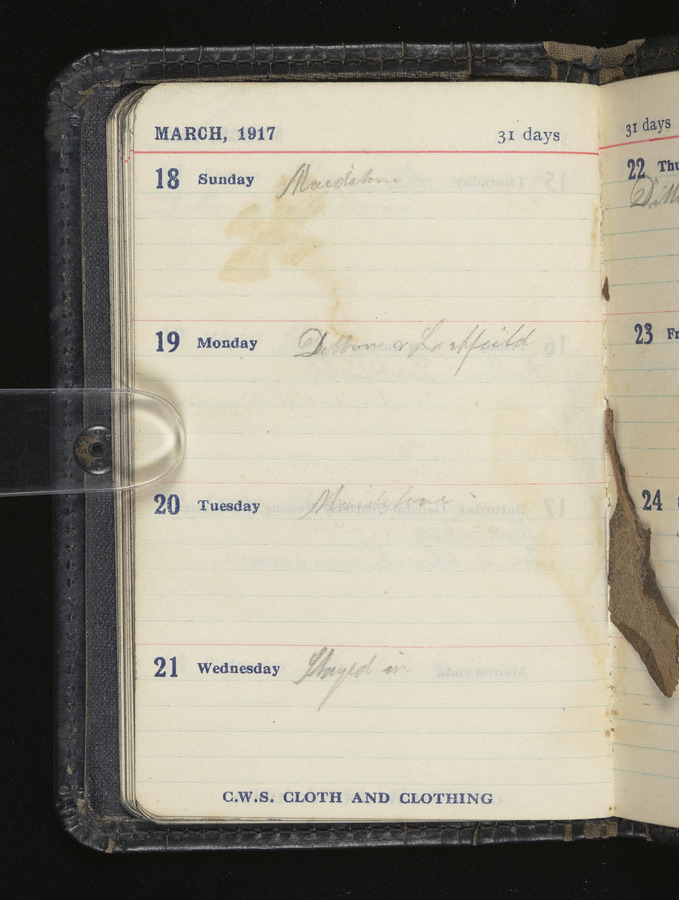 MARCH, 1917 31 days
18 Sunday Maidstone
19 Monday
20 Tuesday Maidstone
21 Wednesday Stayed in
C.W.S. CLOTH AND CLOTHING
31 days
22 Thu
23 Fr
24